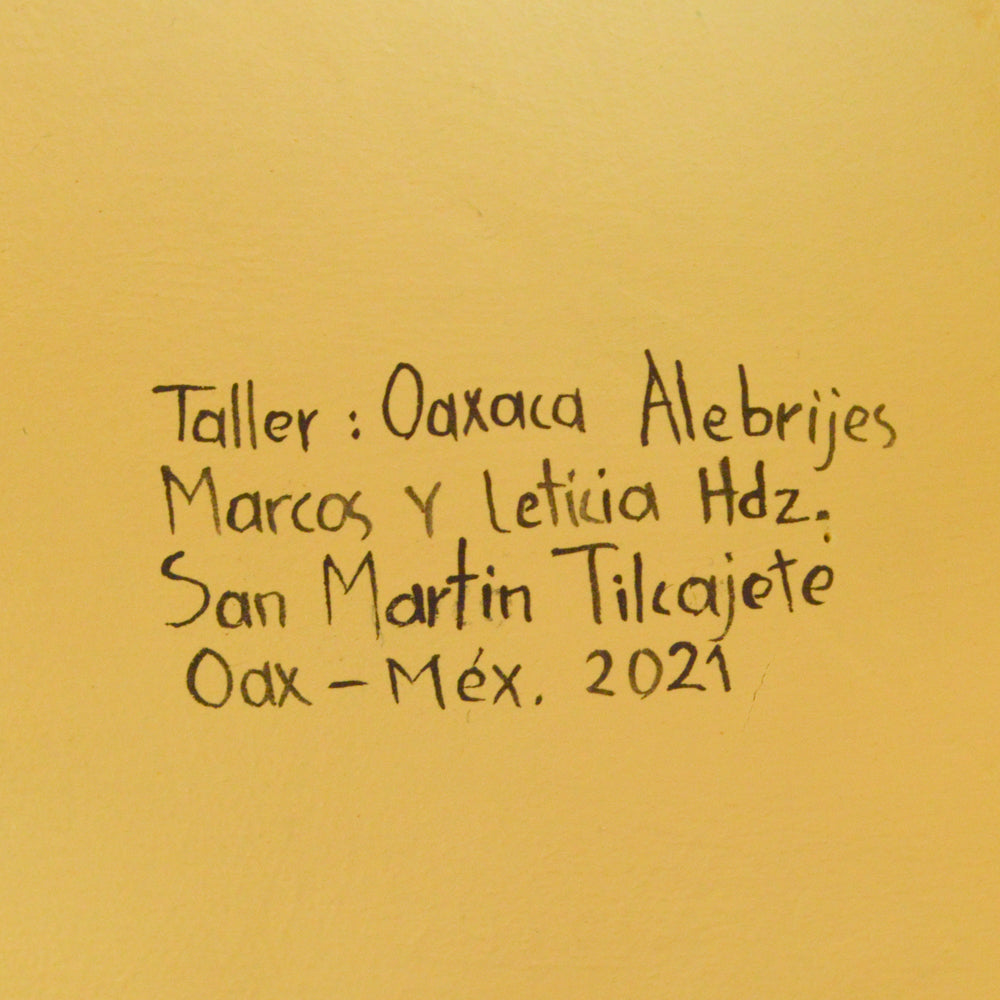 Taller : Oaxaca Alebrijes
Marcos y Leticia Hdz.
San Martin Tilcajete
Oax - Méx. 2021